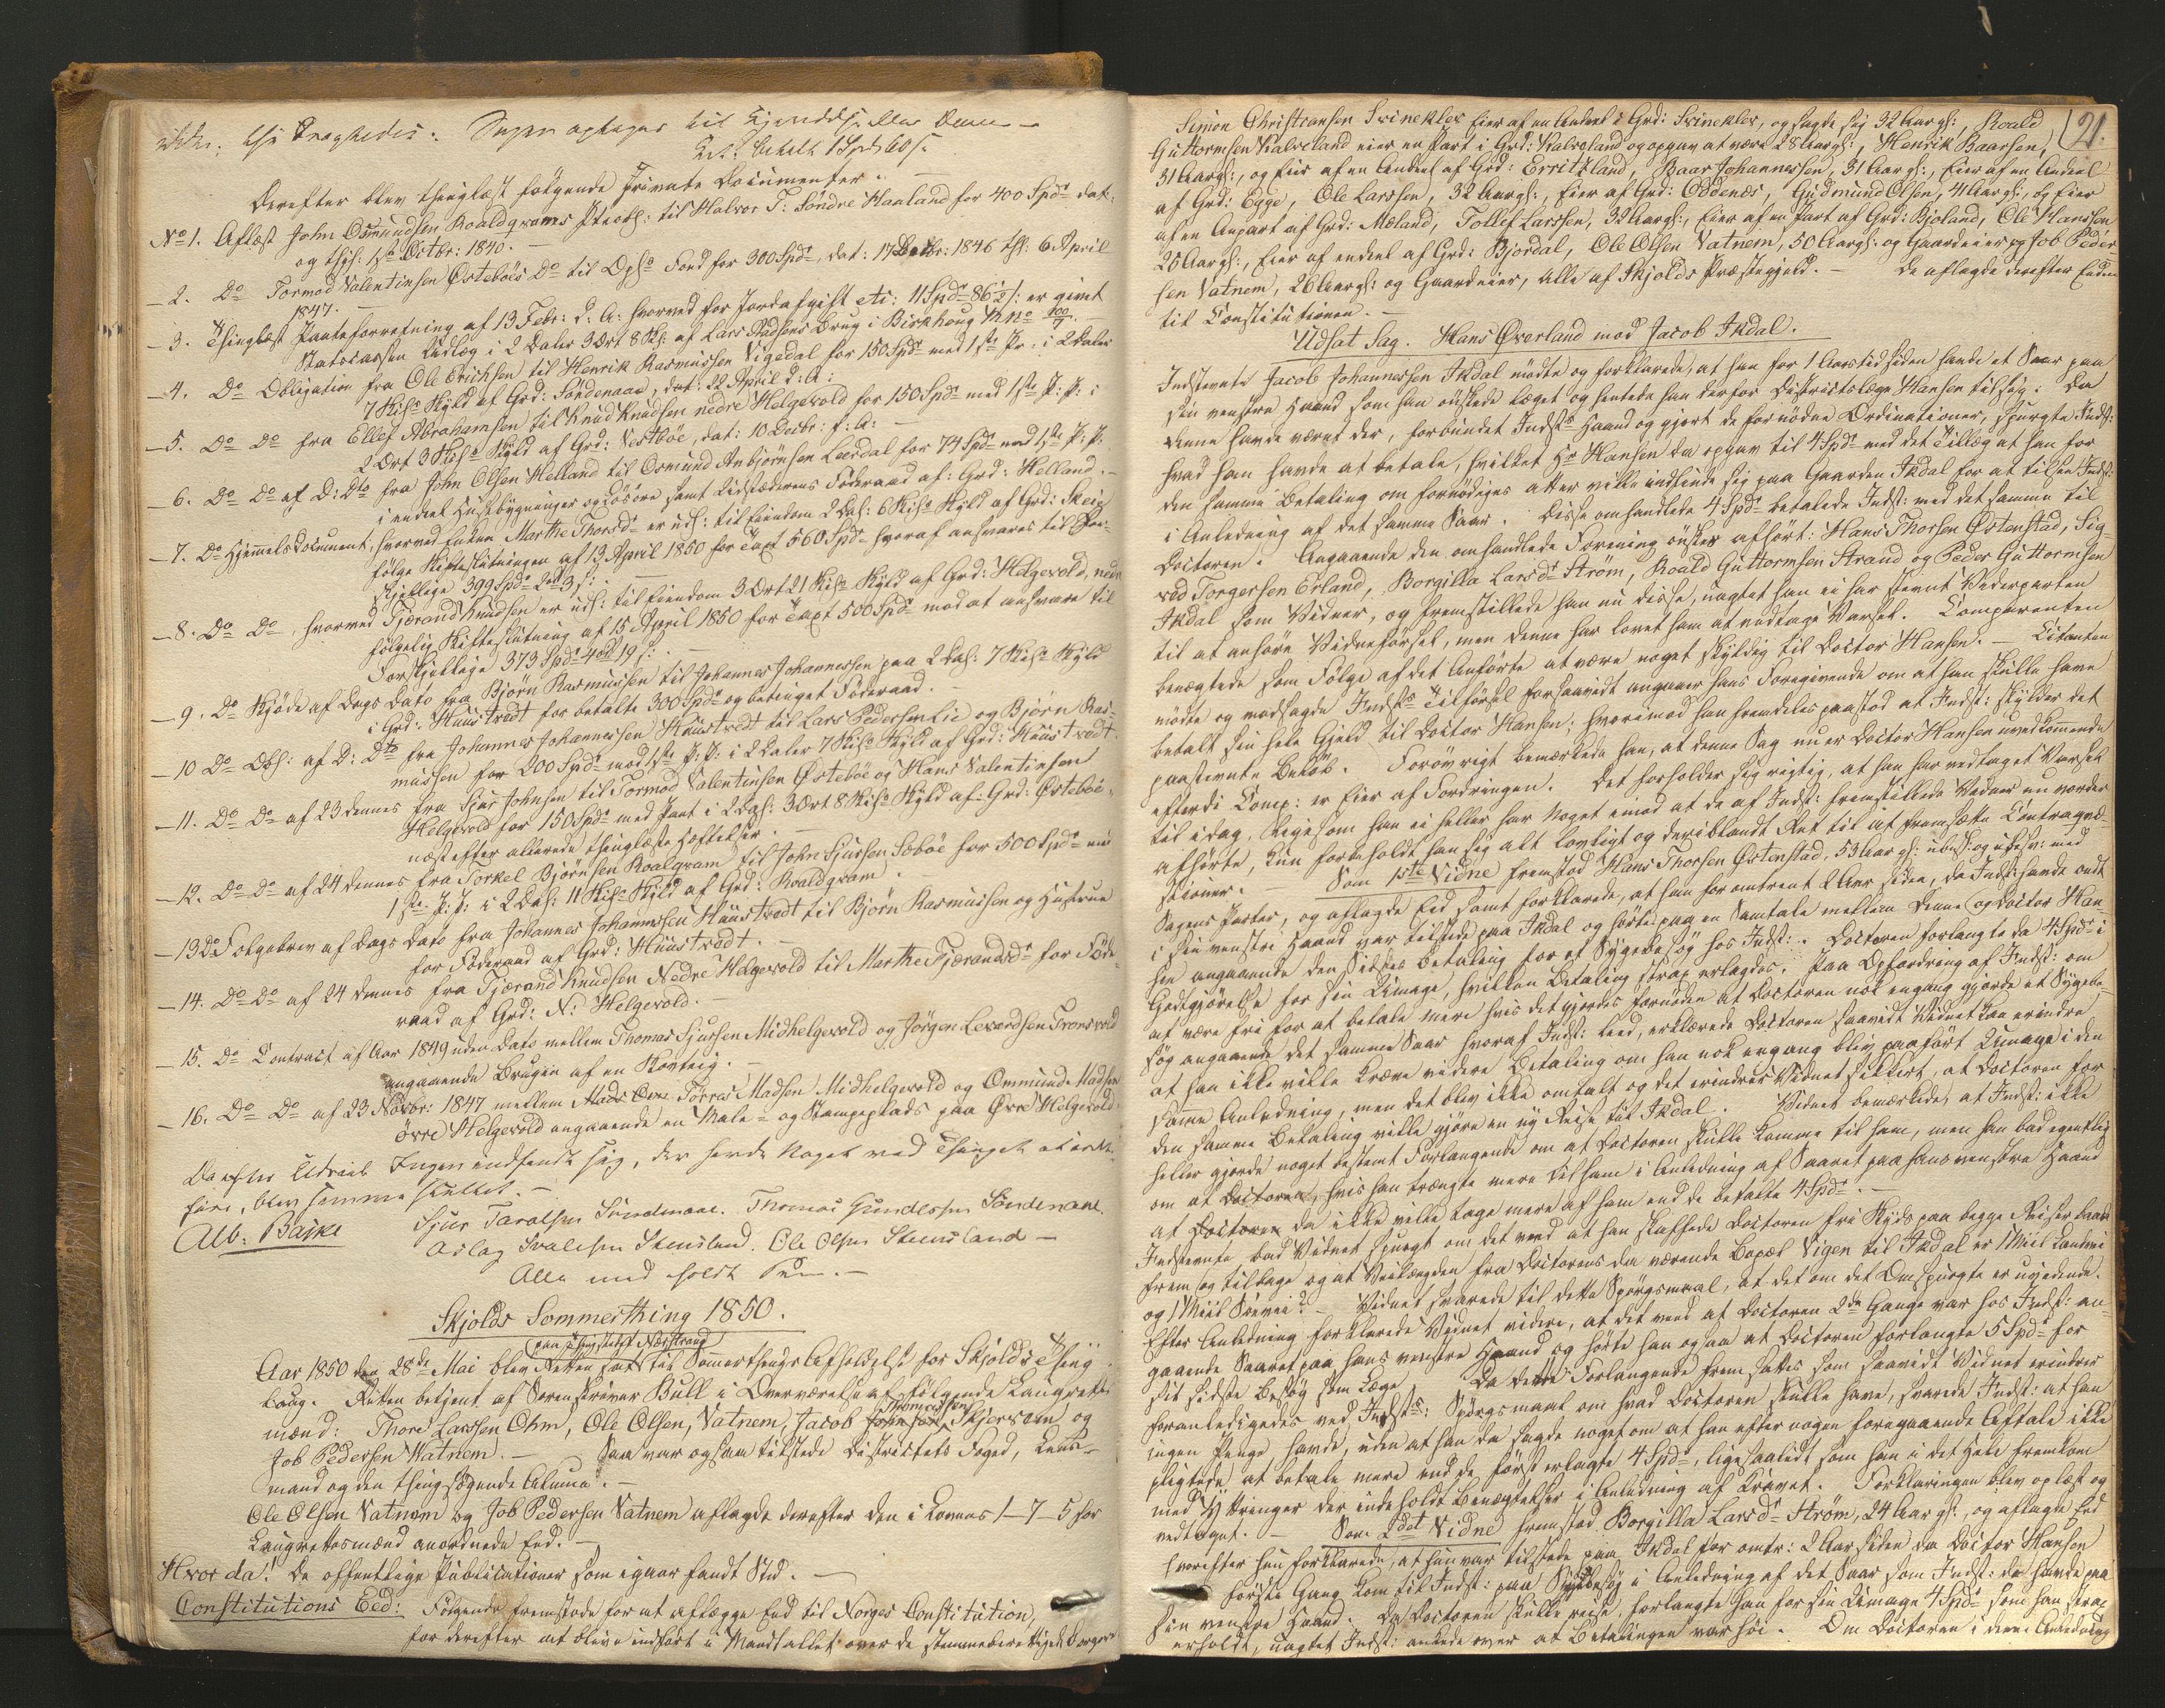 Derefter blev thinglæst følgende Private Documenter. —
No 1. Aflæst John Osmundsen Roaldqvams Pteobl: til Halvor T: Søndre Haaland for 400 Spdr dat:
og thgl: 1ste Octbr: 1840. —
— 2. Do Tormod Valentinsen Østebøes Do til Opls Fond for 300 Spdr, dat: 17 Decbr: 1846 thl: 6 April
1847. —
— 3. Thinglæst Panteforretning af 13 Febr: d: A: hvorved for Jordafgift etc: 11 Spdr 86½ s: er givet
Statscassen Udlæg i 2 Daler 3 Ort 8 s: af Lars Brug i Birkhoug M No 100/7. —
— 4. Do Obligation fra Ole Erichsen til Henrik Rasmussen Vigedal for 150 Spdr med 1ste Pr: i 2 Daler
7 s: Skyld af Grd: Søndenaae, dat: 22 April d: A:
— 5. Do Do fra Ellef Abrahamsen til Knud Knudsen nedre Helgevold for 150 Spdr med 1ste P: P: i
2 Ort 3 Skyld af Grd: Vestbøe, dat: 10 Decbr: f: A: —
— 6. Do Do af D: Dto fra John Olsen Helland til Osmund Anbjørnsen Leerdal for 74 Spdr med 1ste P: P:
i endeel Huusbygninger og Løsøre samt Føderaad af: Grd: Helland. —
— 7. Do Hjemmelsdocument, hvorved Enken Marthe Thorsdr er udl: til Eiendom 2 Dal: 6 Skyld af Grd: Skeie
følge Skifteslutningen af 13 April 1850 for Taxt 560 Spdr hvoraf ansvares til For-
skjellige 399 Spdr 2 Ort 3 s: . —
— 8. Do Do, hvorved Tjerand Knudsen er udl: til Eiendom 3 Ort 21 Skyld af Grd: Helgevold, nedre
følgelig Skifteslutning af 15 April 1850 for Taxt 500 Spdr mod at ansvare til
Forskjellige 373 Spdr 4 Ort 19 s: . —
— 9. Do Skjøde af Dags Dato fra Bjørn Rasmussen til Johannes Johannessen paa 2 Dal: 7 Skyld
i Grd: Huustvedt for betalte 300 Spdr og betinget Føderaad. —
— 10 Do Obl: af D: Dto fra Johannes Johannessen Huustvedt til Lars Pedersen Lie og Bjørn Ras-
mussen for 200 Spdr med 1ste P: P: i 2 Daler 7 Skyld af Grd: Huustvedt.
— 11. Do Do af 23 dennes fra Sjur Johnsen til Tormod Valentinsen Østebøe og Hans Valentinsen
Helgevold for 150 Spdr med Pant i 2 Dal: 3 Ort 8 Skyld af Grd: Østebøe,
næstefter allerede thinglæste Hæftelser. —
— 12. Do Do af 24 dennes fra Torkel Bjørnsen Roalqvam til John Sjursen Sæbøe for 500 Spdr med
1ste P: P: i 2 Dal: 11 Skyld af Grd: Roaldqvam.
— 13 Do Folgebrev af Dags Dato fra Johannes Johannessen Huustvedt til Bjørn Rasmussen og Hustrue
for Føderaad af Grd: Huustvedt. —
— 14. Do Do af 24 dennes fra Tjerand Knudsen Nedre Helgevold til Marthe Tjerandsdr for Føde-
raad af Grd: N: Helgevold. —
— 15. Do Contract af Aar 1849 uden Dato mellem Thomas Sjursen Midhelgevold og Jørgen Levordsen Tronsvold
angaaende Brugen af en Skovteig. —
— 16. Do Do af 23 Novbr: 1847 mellem Tørres Madsen Midhelgevold og Ommund Madsen
øvre Helgevold angaaende en Male- og Stampeplads paa Øvre Helgevold
Da efter Udraab Ingen indfandt sig, der havde Noget ved Thinget at
føre, blev samme sluttet. —
Alb: Balke Sjur Taralsen Søndenaae. Thomas Gundersen Søndenaae.
Aslag Svalesen Stensland. Ole Olsen Stensland —
Alle med holdt Pen. —
Skjolds Sommerthing 1850.
paa Thingstedet Nærstrand
Aar 1850 den 28de Mai blev Retten sat til Sommerthings Afholdelse for Skjolds Thing-
laug. Retten betjent af Sorenskriver Bull i Overværelse af følgende Laugrettes
mænd: Thore Larssen Ohm, Ole Olsen, Vatnem, Jacob Thomassen Skjersem og
Job Pedersen Vatnem. — Saa var ogsaa tilstede Districtets Foged, Lens-
mand og den thingsøgende Almue. —
Ole Olsen Vatnem og Job Pedersen Vatnem aflagde derefter den i Lovens 1–7–5 for
Laugrettesmænd anordnede Eed. —
Hvor da! De offentlige Publicationer som igaar fandt Sted. —
Constitutions Eed: Følgende fremstode for at aflægge Eed til Norges Constitution,
for derefter at blive indført i Mandtallet over de stemmeberettigede Borgere
21.
Simon Christiansen Svinekler Eier af en Andeel i Grd: Svinekler, og sagde sig 32 Aar gl:, Roald
Guttormsen Kalveland eier en Part i Grd: Kalveland og opgav at være 28 Aar gl:, Henrik Baarsen,
31 Aar gl:, og Eier af en Andeel af Grd: Erritzland, Baar Johannessen, 31 Aar gl:, Eier af en Andeel
af Grd: Egge, Ole Larssen, 32 Aar gl:, Eier af Grd: Oddenæs, Gudmund Olsen, 41 Aar gl:, og Eier
af en Anpart af Grd: Mæland, Tollef Larssen, 32 Aar gl:, Eier af en Part af Grd: Bjoland, Ole Hanssen
28 Aar gl:, Eier af endeel af Grd: Bjordal, Ole Olsen Vatnem, 50 Aar gl: og Gaardeier og Job Peder-
sen Vatnem, 26 Aar gl: og Gaardeier, alle af Skjolds Præstegjeld. — De aflagde derefter Eeden
til Constitutionen. —
Udsat Sag. Hans Øverland mod Jacob Ikdal.
Indstevnte Jacob Johannessen Ikdal mødte og forklarede, at han for 1 Aarstid siden havde et Saar paa
sin venstre Haand som han ønskede læget og hentede han derfor Districtslæge Hansen til sig. Da
denne havde været der, forbundet Indsts Haand og gjort de fornødne Ordinationer, spurgte Indst:
hvad han havde at betale, hvilket Hr Hansen da opgav til 4 Spdr med det Tillæg at han for
den samme Betaling om fornødiges atter ville indfinde sig paa Gaarden Ikdal for at tilsee Indst:
i Anledning af det samme Saar. Disse omhandlede 4 Spdr betalede Indst: med det samme til
Doctoren. Angaaende den omhandlede Forening ønskes afhørt: Hans Thorsen Østenstad, Sig-
vad Torgersen Erland, Borgilla Larsdr Strøm, Roald Guttormsen Strand og Peder Guttormsen
Ikdal som Vidner, og fremstillede han nu disse, uagtet han ei har stevnt Vederparten
til at anhøre Vidneførsel, men denne har lovet ham at vedtage Varsel. Comparenten
benægtede som Følge af det Anførte at være noget skyldig til Doctor Hansen. — Citanten
mødte og modsagde Indsts Tilførsel forsaavidt angaaer hans Foregivende om at han skulle have
betalt sin hele Gjeld til Doctor Hansen; hvorimod han fremdeles paastod at Indst: skylder det
paastevnte Beløb. Forøvrigt bemærkede han, at denne Sag nu er Doctor Hansen uvedkommende
efterdi Comp: er Eier af Fordringen. Det forholder sig rigtig, at han har vedtaget Varsel
til idag, ligesom han ei heller har Noget imod at de af Indst: fremstillede Vidner nu vorder
afhørte, kun forbeholdt han sig alt lovligt og deriblandt Ret til at fremsætte Contraqvæ-
stioner. — Som 1ste Vidne fremstod Hans Thorsen Østenstad, 53 Aar gl: ubesl: og ubesv: med
Sagens Parter, og aflagde Eed samt forklarede, at han for omtrent 2 Aar siden, da Indst: havde ondt
i sin venstre Haand var tilstede paa Ikdal og hørte paa en Samtale mellem denne og Doctor Han-
sen angaaende den Sidstes Betaling for et Sygebesøg hos Indst:. Doctoren forlangte da 4 Spdr i
Godtgjørelse for sin Umage, hvilken Betaling strax erlagdes. Paa Opfordring af Indst: om
at være fri for at betale mere hvis det gjordes fornøden at Doctoren nok engang gjorde et Sygebe-
søg angaaende det samme Saar hvoraf Indst: leed, erklærede Doctoren saavidt Vidnet kan erindre
at han ikke ville kræve videre Betaling om han nok engang blev paaført Umage i den
samme Anledning, men det blev ikke omtalt og det erindrer Vidnet sikkert, at Doctoren for
den samme Betaling ville gjøre en ny Reise til Ikdal. Vidnet bemærkede, at Indst: ikke
heller gjorde noget bestemt Forlangende om at Doctoren skulle komme til ham, men han bad egentlig
om at Doctoren, hvis han trængte mere til ham i Anledning af Saaret paa hans venstre Haand
at Doctoren da ikke ville tage mere af ham end de betalte 4 Spdr. —
Indstevnte bad Vidnet spurgt om det veed at han skaffede Doctoren fri Skyds paa begge Reiser baade
frem og tilbage og at Veilængden fra Doctorens da værende Bopæl Vigen til Ikdal er 1 Miil Landvei
og 1 Miil Søevei? — Vidnet svarede til dette Spørgsmaal, at det om det Omspurgte er uvidende.
Efter Anledning forklarede Vidnet videre, at det veed at Doctoren 2de Gange var hos Indst: an-
gaaende Saaret paa hans venstre Haand og hørte han ogsaa at Doctoren forlangte 5 Spdr for
sit sidste Besøg som Læge. Da dette Forlangende fremsattes som saavidt Vidnet erindrer
foranledigedes ved Indsts: Spørgsmaal om hvad Doctoren skulle have, svarede Indst: at han
ingen Penge havde, uden at han da sagde noget om at han efter nogen foregaaende Aftale ikke
pligtede at betale mere end de først erlagte 4 Spdr, ligesaalidt som han i det Hele fremkom
med Yttringer der indeholdt Benægtelse i Anledning af Kravet. Forklaringen blev oplæst og
vedtaget. — Som 2det Vidne fremstod Borgilla Larsdr Strøm, 24 Aar gl:, og aflagde Eed
hvorefter hun forklarede, at hun var tilstede paa Ikdal for omtr: 2 Aar siden da Doctor Hansen
første Gang kom til Indst: paa Sygebesøg i Anledning af det Saar som Indst: da havde paa
sin venstre Haand. Da Doctoren skulle reise, forlangte han for sin Umage 4 Spdr som han strax
erholdt, uagtet Indst: ankede over at Betalingen var høi. Om Doctoren i denne Anledning